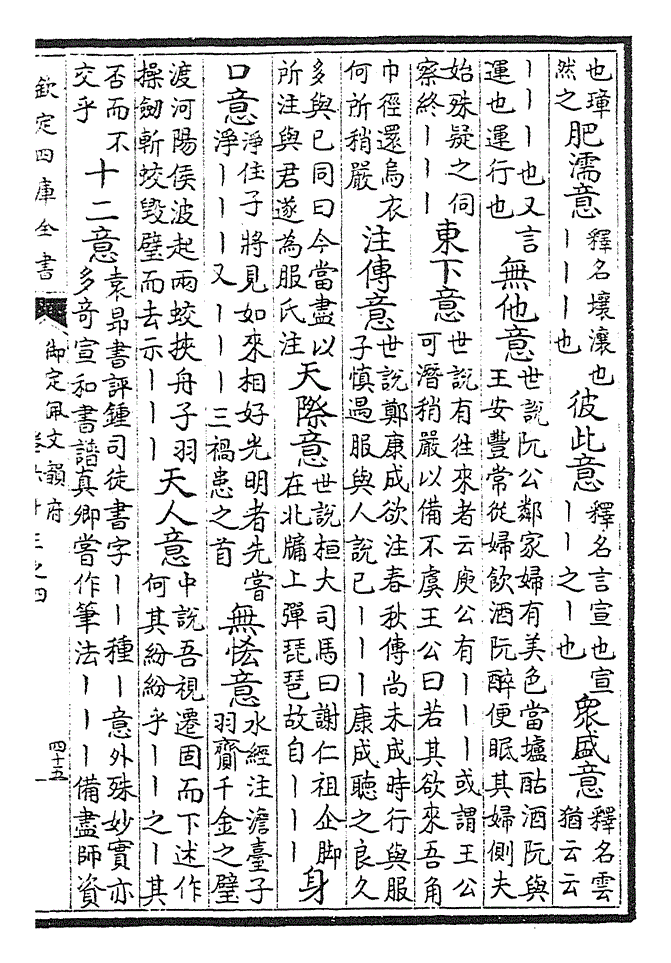 也璋然之肥濡意釋名壤瀼也｜｜｜也彼此意釋名言宣也宣｜｜之｜也衆盛意釋名雲猶云云
｜｜｜也又言運也運行也無他意世說阮公鄰家婦有美色當壚酤酒阮與王安豐常從婦飲酒阮醉便眠其婦側夫
始殊疑之伺察終｜｜｜東下意世說有往來者云庾公有｜｜｜或謂王公可潛稍嚴以備不虞王公曰若其欲來吾角
巾徑還烏衣何所稍嚴注傳意世說鄭康成欲注春秋傳尚未成時行與服子慎遇服與人說已｜｜｜康成聽之良久
多與已同曰今當盡以所注與君遂為服氏注天際意世說桓大司馬曰謝仁祖企脚在北牖上彈琵琶故自｜｜｜身
口意淨住子將見如來相好光明者先當淨｜｜｜又｜｜｜三禍患之首無恡意水經注澹臺子羽齎千金之璧
渡河陽侯波起兩蛟挾舟子羽操劒斬蛟毀璧而去示｜｜｜天人意中說吾視遷固而下述作何其紛紛乎｜｜之｜其
否而不交乎十二意袁昂書評鍾司徒書字｜｜種｜意外殊妙實亦多奇宣和書譜真卿嘗作筆法｜｜｜備盡師資
欽定四庫全書
御定佩文韻府
卷六十三之四
四十五